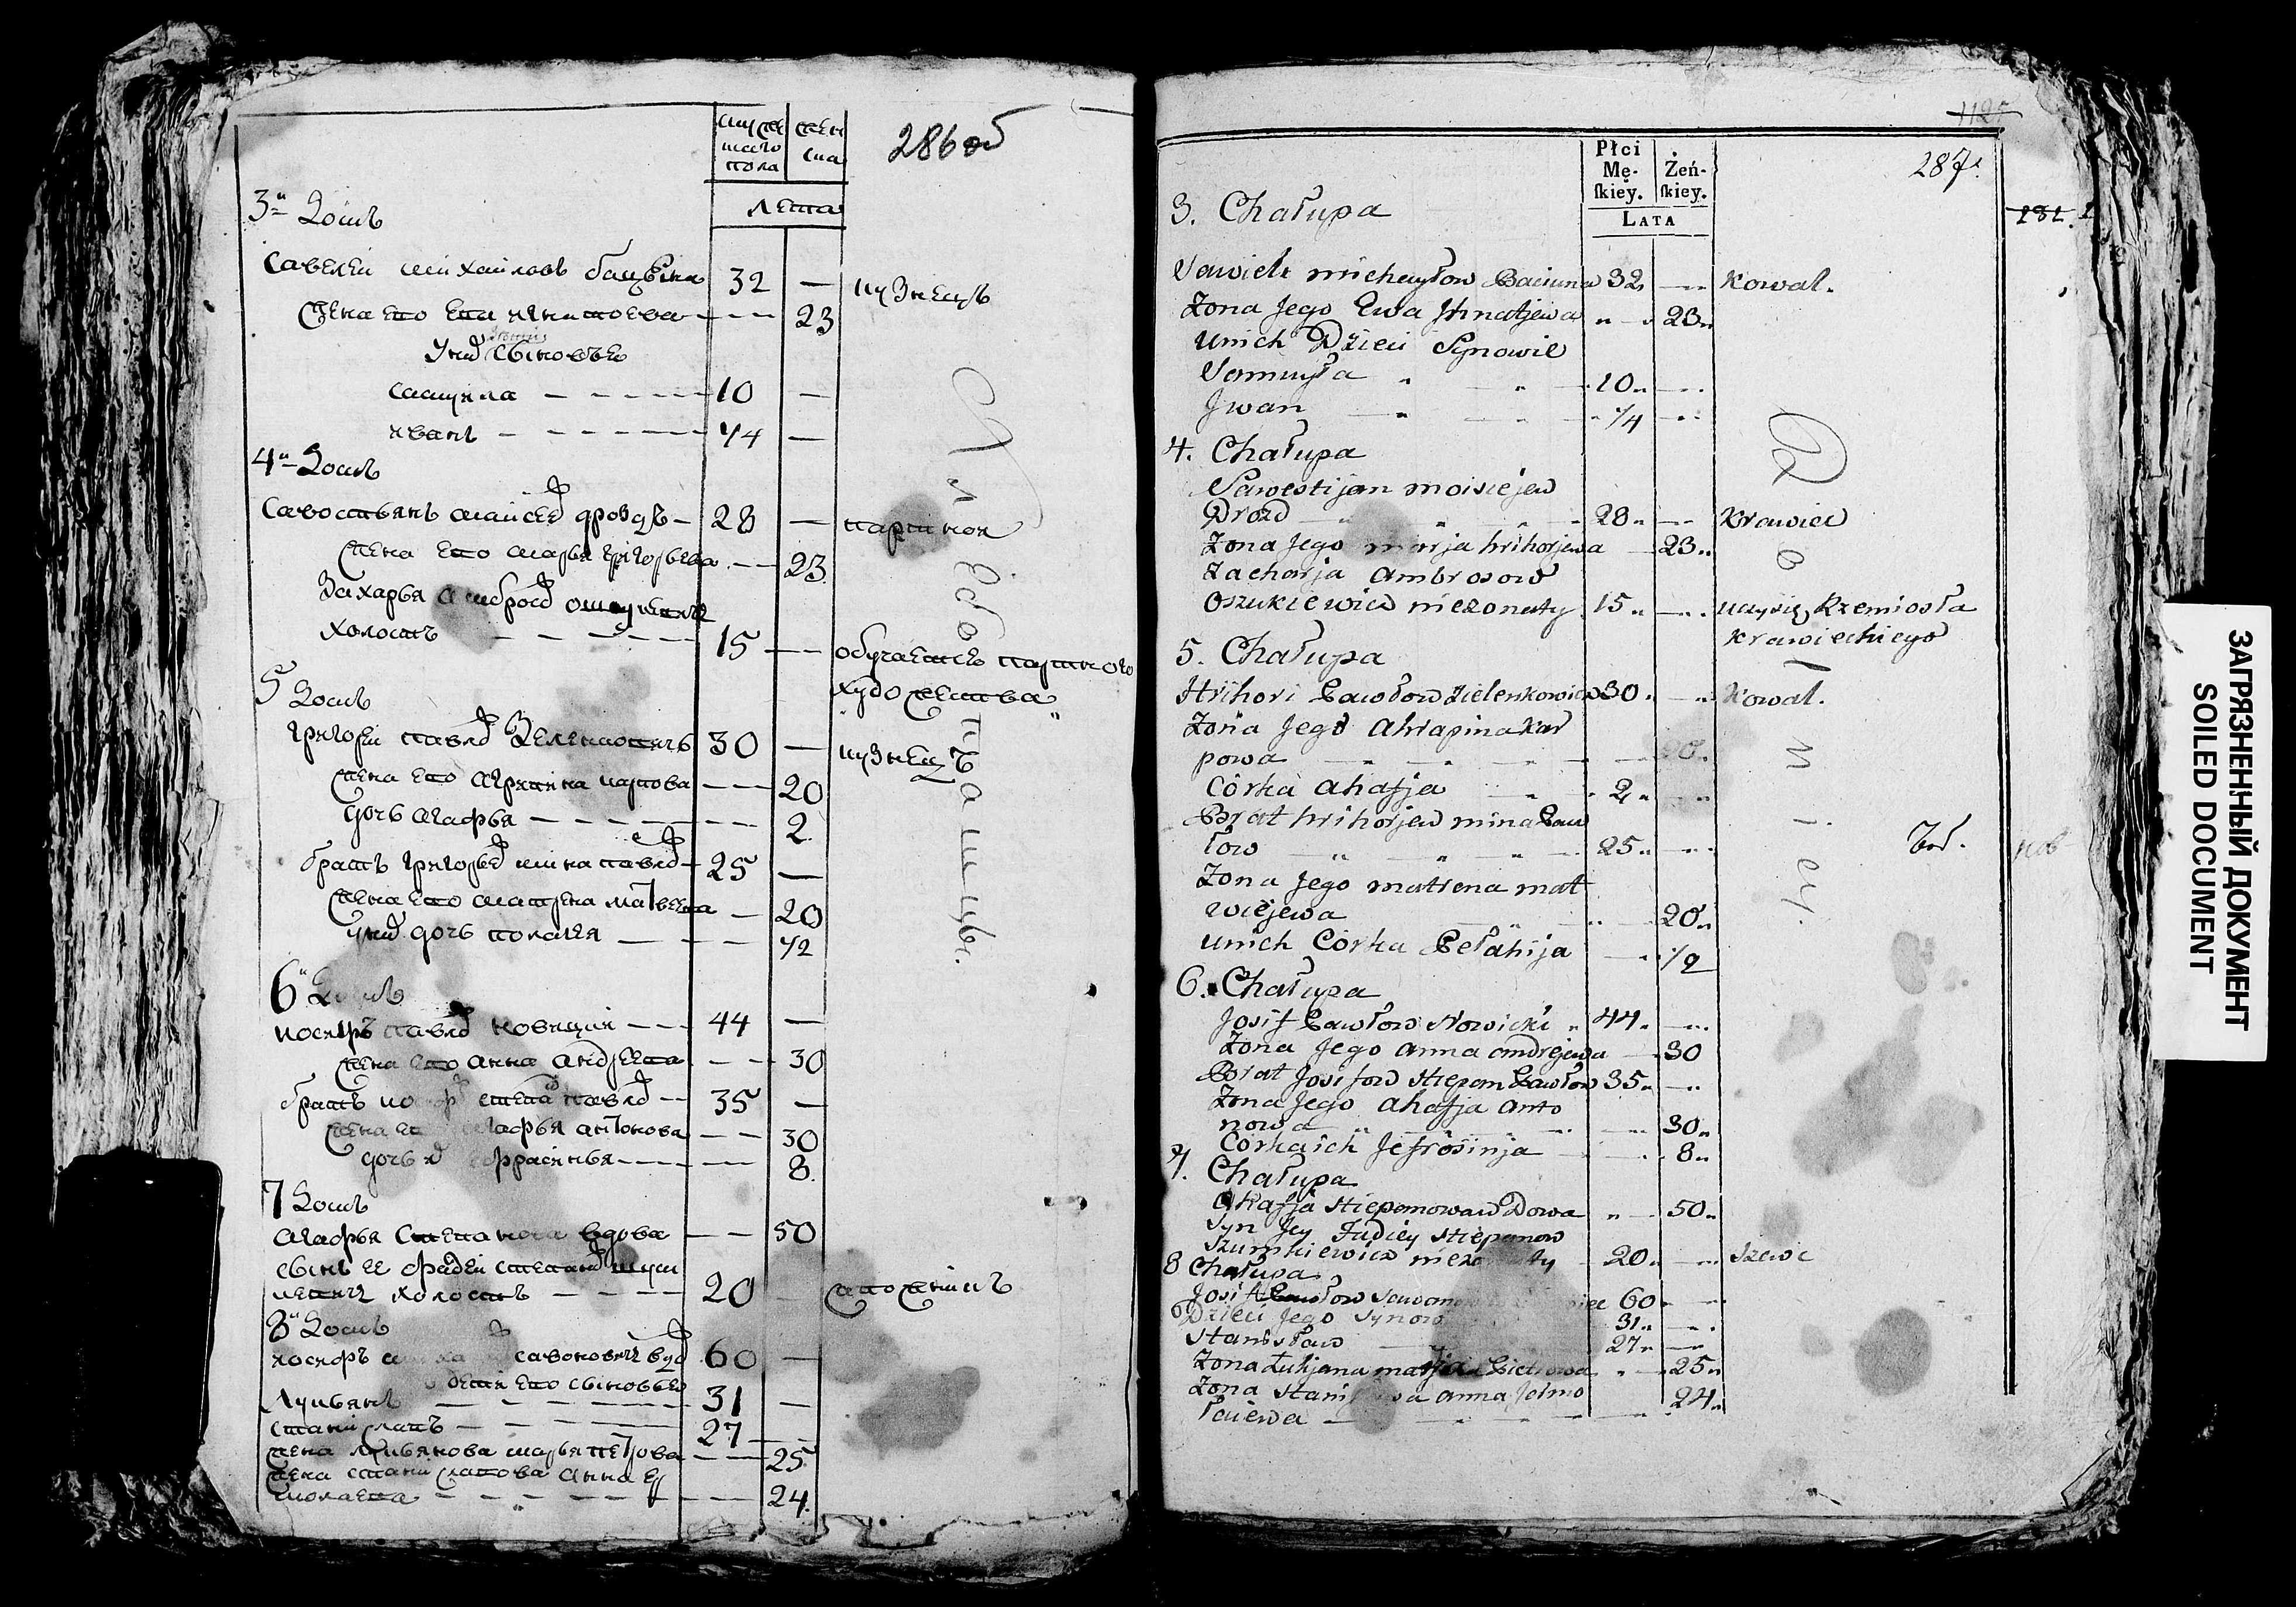 мужескаго пола
женска
286 об
лета
3й Домъ
Савелеи михаиловъ бацуна 32 — кузнецъ
жена его ева игнатоева — 23
у них дети сыновье
самуила — 10 —
иванъ — 1/4 —
4й Домъ
Савостьянъ мойсеев дроздъ — 28 — партноя
жена его марья григорьева — 23
Захарья амброзов
холостъ — 15 — обучаетсь партного
художества
5 Домъ
григореи павлов Зеленковичъ 30 — кузнецъ
жена его агрипина карпова — 20
дочь агафья — 2
братъ григорьев мина павлов — 25 —
жена его матрена матвеева — 20
у них дочь полагея — 1/2
6й Домъ
иосифъ павлов новицки — 44 —
жена его анна андреева — 30
братъ степан павлов — 35 —
жена агафья антонова — 30
дочь — 8
7 Домъ
агафья степанова вдова — 50
сынъ ее фадеи степанов шум
кевичъ холостъ — 20 — сапожникъ
8й Домъ
иосифъ савонович 60 —
дети его сыновье
Лукьянъ — 31 —
станиславъ — 27 —
жена лукьянова марья петрова — 25
жена станиславова анна ер
молаева — 24
112
Płci Mę-ſkiey. Żeń-ſkiey.
287.
LATA
3. Chałupa
Sawieli michayłow Baciuna 32 — Kowal.
Zona Jego Ewa Hnatjewa „ — 23„
Unich Dzieci Synowie
Samuyła „ — 10„ —
Jwan — 1/4 —
4. Chałupa
Sawostijan moisiejew
Drozd — 28„ — Krawiec
Zona Jego marja hrihorjewa — 23„
Zacharja Ambrosow
Oszukiewicz niezonaty 15„ — uczysię Rzemiosła
Krawieckiego
5. Chałupa
Hrihori Pawłow Zielenkowicz 30„ — Kowal.
Zona Jego Ahrapina Kar
powa — 20„
Córka Ahafja — 2„ —
Brat hrihorjew mina Paw
łow — 25„ —
Zona Jego matrena mat
wiejewa — 20„
Unich Córka Pełahija — 1/2
6. Chałupa
Josif Pawłow Nowicki „ 44„ —
Zona Jego Anna Andrejewa — 30
Brat Josifow Stiepan Pawłow 35„ —
Zona Jego Ahafja Anto
nowa — 30„
Córka ich Jefrosinja — 8„
7. Chałupa
Ahafja Stiepanowa Wdowa „ — 50„
Syn Jey Fadiey Stiepanow
Szumkiewicz niezonaty 20„ — Szewc
8 Chałupa
Josif 60 —
Dzieci Jego Synow 31„ —
Stanisław 27„ —
Zona Łukjana marja Pietrowa „ — 25„
Zona Stanisława Anna Jermo
łaiewa — 24„
ЗАГРЯЗНЕННЫЙ ДОКУМЕНТ
SOILED DOCUMENT